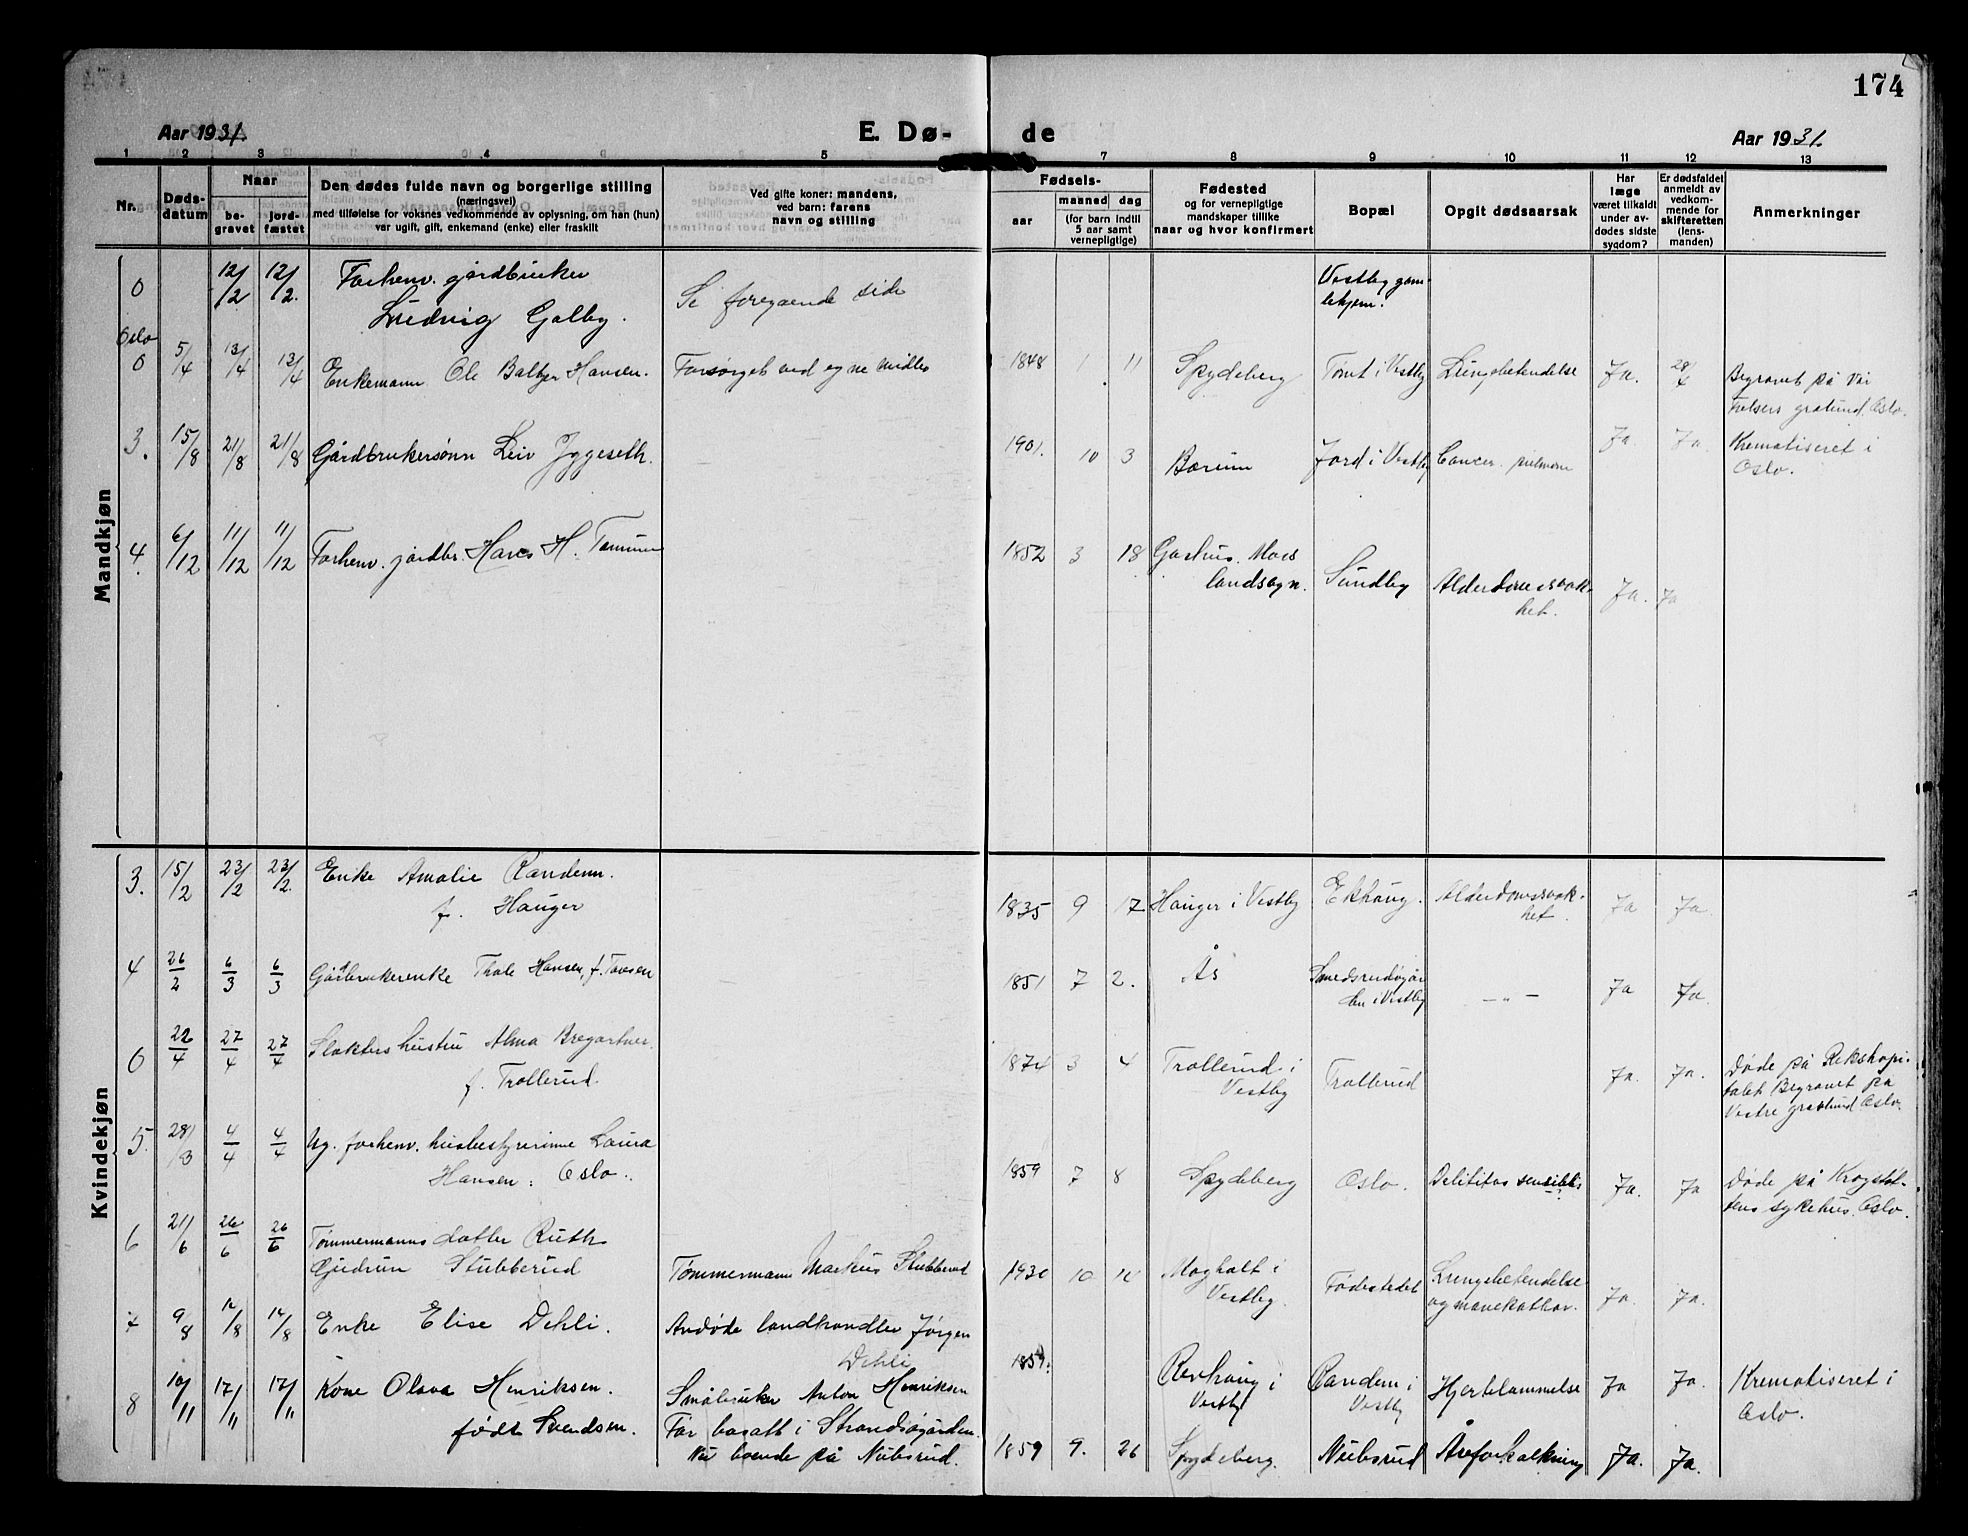 174
Aar 1931.
E. Dø-
de
Aar 1931.
1 2 3 4 5 7 8 9 10 11 12 13
Nr.
Døds-
datum
Naar
be-
gravet
jord-
fæstet
Den dødes fulde navn og borgerlige stilling
(næringsvei)
med tilføielse for voksnes vedkommende av oplysning, om han (hun)
var ugift, gift, enkemand (enke) eller fraskilt
Ved gifte koner: mandens,
ved barn: farens
navn og stilling
Fødsels-
aar
maaned dag
(for barn indtil
5 aar samt
vernepligtige)
Fødested
og for vernepligtige
mandskaper tillike
naar og hvor konfirmert
Bopæl
Opgit dødsaarsak
Har
læge
været tilkaldt
under av-
dødes sidste
sygdom?
Er dødsfaldet
anmeldt av
vedkom-
mende for
skifteretten
(lens-
manden)
Anmerkninger
Mandkjøn
0 12/2 12/2. Forhenv. gårdbruker
Ludvig Galby.
Se foregaende side
Vestby gam-
lehjem.
Oslo
0 5/4 13/4 13/4 Enkemann Ole Hansen.
Forsørget ved egne midler
1848 1 11 Spydeberg Tomt i Vestby Lungebetendelse Ja. 28/4
Begravet på Vår
Frelsers gravlund Oslo.
3. 15/8 21/8 21/8 Gårdbrukersønn Leiv Jyggeseth.
1901. 10 3 Bærum Jord i Vestby Cancer pulmon Ja Ja Krematiseret i
Oslo.
4. 6/12 11/12 11/12 Forhenv. gårdbr. Hans H.
1852 3 18 Moss
landsogn. Sundby Alderdomssvak-
het. Ja. Ja
Kvindekjøn
3. 15/2 23/2 23/2. Enke Amalie Randem.
f. Hauger
1835 9 17 Hauger i Vestby Ekhaug. Alderdomssvak-
het. Ja Ja
4 26/2 6/3 6/3 Gårdbrukerenke Thale Hansen, f.
1851 7 2. Ås Smedsrudsgår
den i Vestby —„— Ja Ja.
0 22/4 27/4 27/4 Slakters hustru Alma Bregartner.
f. Trollerud.
1874 3 4 Trollerud i
Vestby Trollerud Ja. Ja.
Døde på Rikshospi-
talet Begravet på
Vestre gravlund Oslo.
5. 28/3 4/4 4/4 Ug. forhenv. husbestyrerinne Laura
Hansen: Oslo.
1859 7 8 Spydeberg Oslo. Ja. Ja
Døde på Krogstøt-
tens sykehus. Oslo.
6 21/6 26/6 26/6 Tømmermanns datter Ruth
Gudrun Stubberud
Tømmermann Markus Stubberud
1930 10 14 i
Vestby. Fødestedet Lungebetendelse
og mavekatbar. Ja. Ja.
7 9/8 14/8 14/8 Enke Elise Dehli.
Avdøde landhandler Jørgen
Dehli
1854. Revhaug i
Vestby Randem i
Vestby Hjertelammelse Ja Ja. Krematiseret i
Oslo.
8 10/11 17/11 17/11 Kone Olava Henriksen.
født Svendsen.
Småbruker Anton Henriksen
Før bosatt i Strandsgården.
Nu boende på Nubsrud.
1859 9. 26 Spydeberg. Nubsrud Åreforkalkning Ja. Ja.